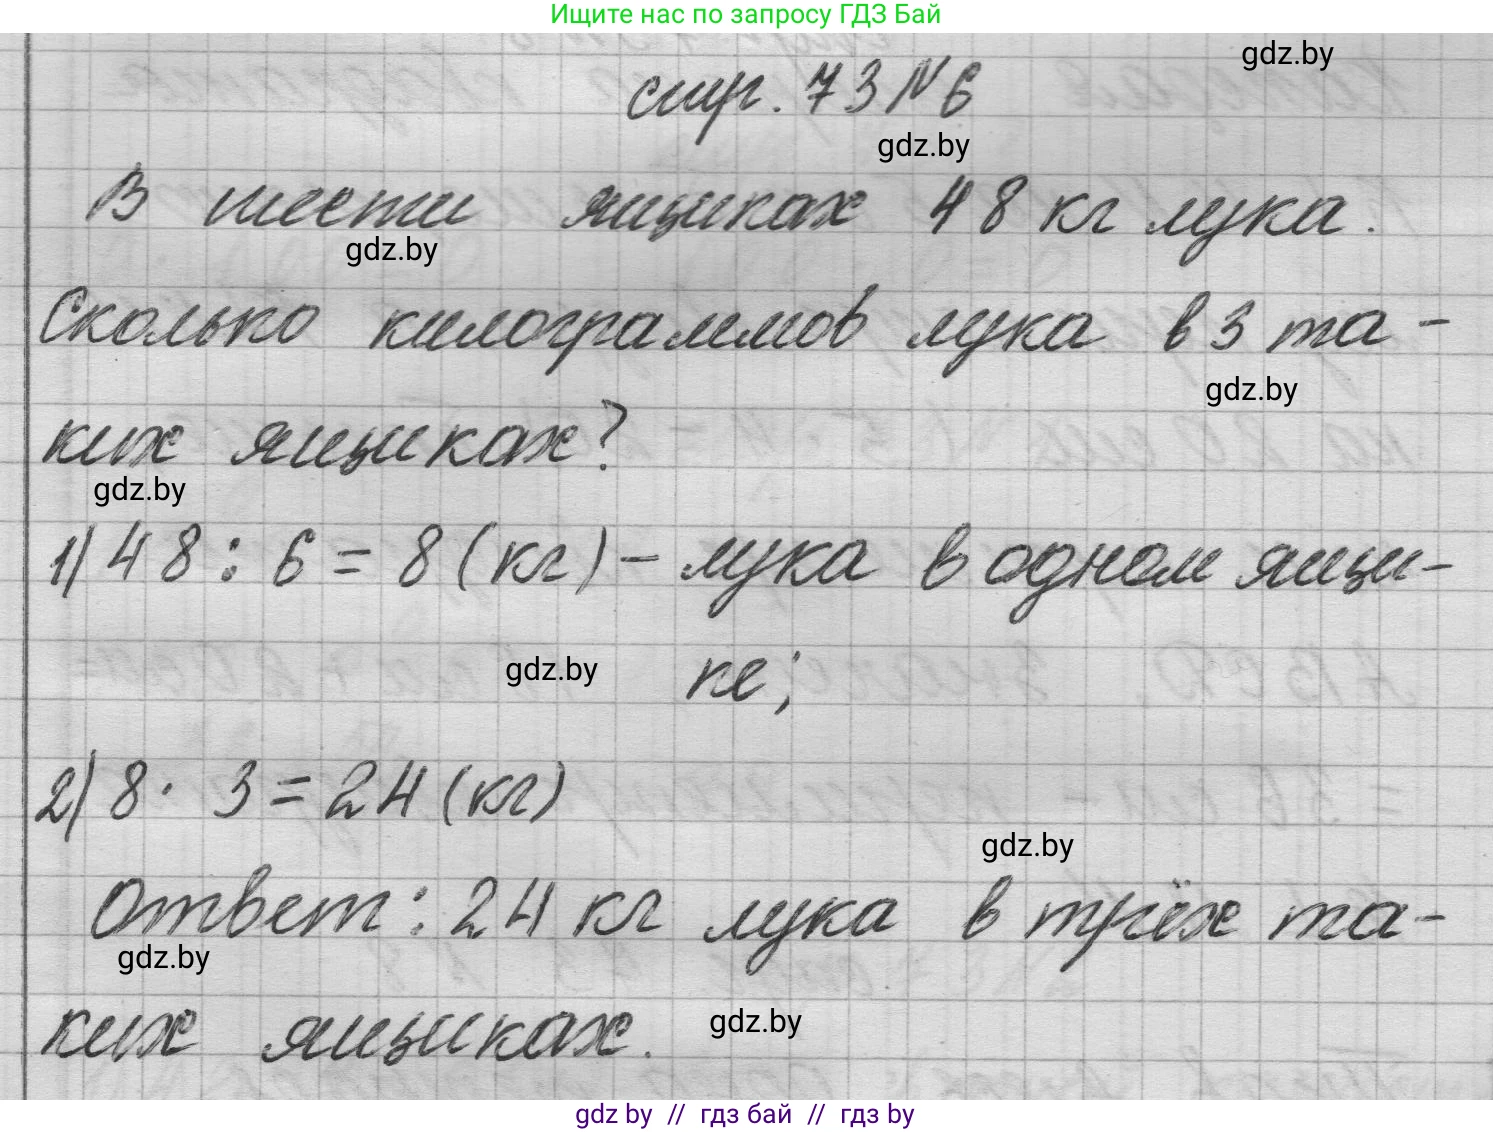 Ищите нас по запросу ГДЗ Бай
gdz.by
стр. 73 №6
gdz.by
В шести ящиках 48 кг лука.
gdz.by
Сколько килограммов лука в 3 та-
gdz.by
ких ящиках?
gdz.by
1) 48 : 6 = 8 (кг) – лука в одном ящи-
gdz.by
ке;
2) 8 · 3 = 24 (кг)
gdz.by
Ответ: 24 кг лука в трёх та-
gdz.by
ких ящиках.
gdz.by
gdz by // гдз бай // гдз by